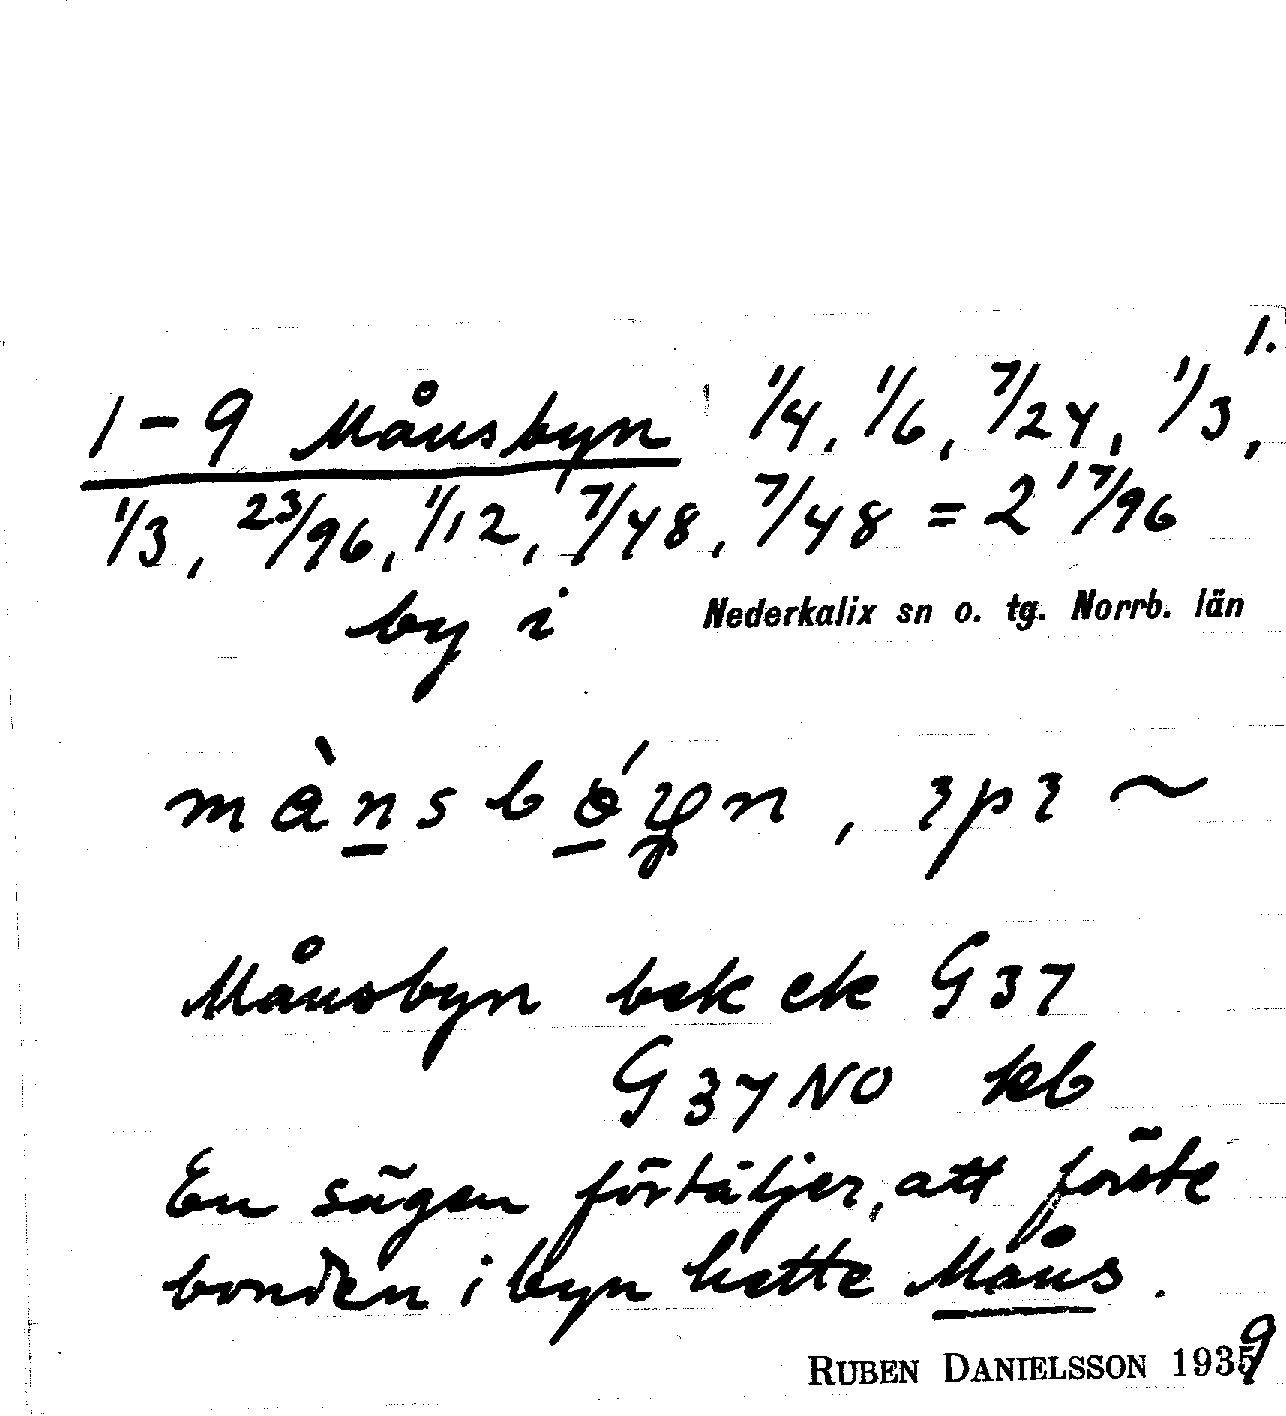 1.
1-9 Månsbyn 1/4, 1/6, 7/24, 1/3,
1/3, 23/96, 1/12, 7/48, 7/48 = 2 17/96
by i Nederkalix sn o. tg. Norrb. län
Månsbyn bek ek G 37
G 37 NO kb
En sägen förtäljer, att förste
bonden i byn hette Måns.
RUBEN DANIELSSON 1939